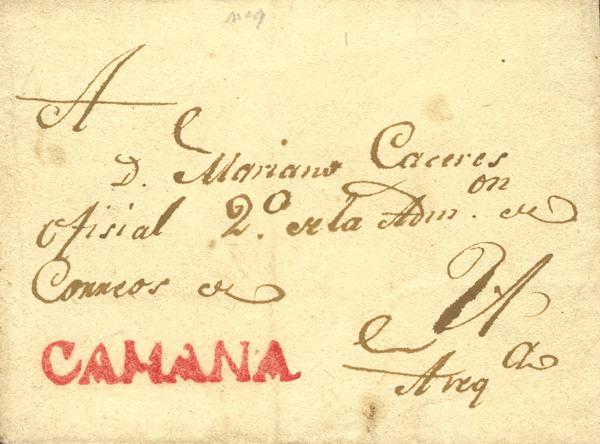 A
D. Mariano Caceres
Ofisial 2.º de la Adm.on de
Correos de
CAMANA
Areqa